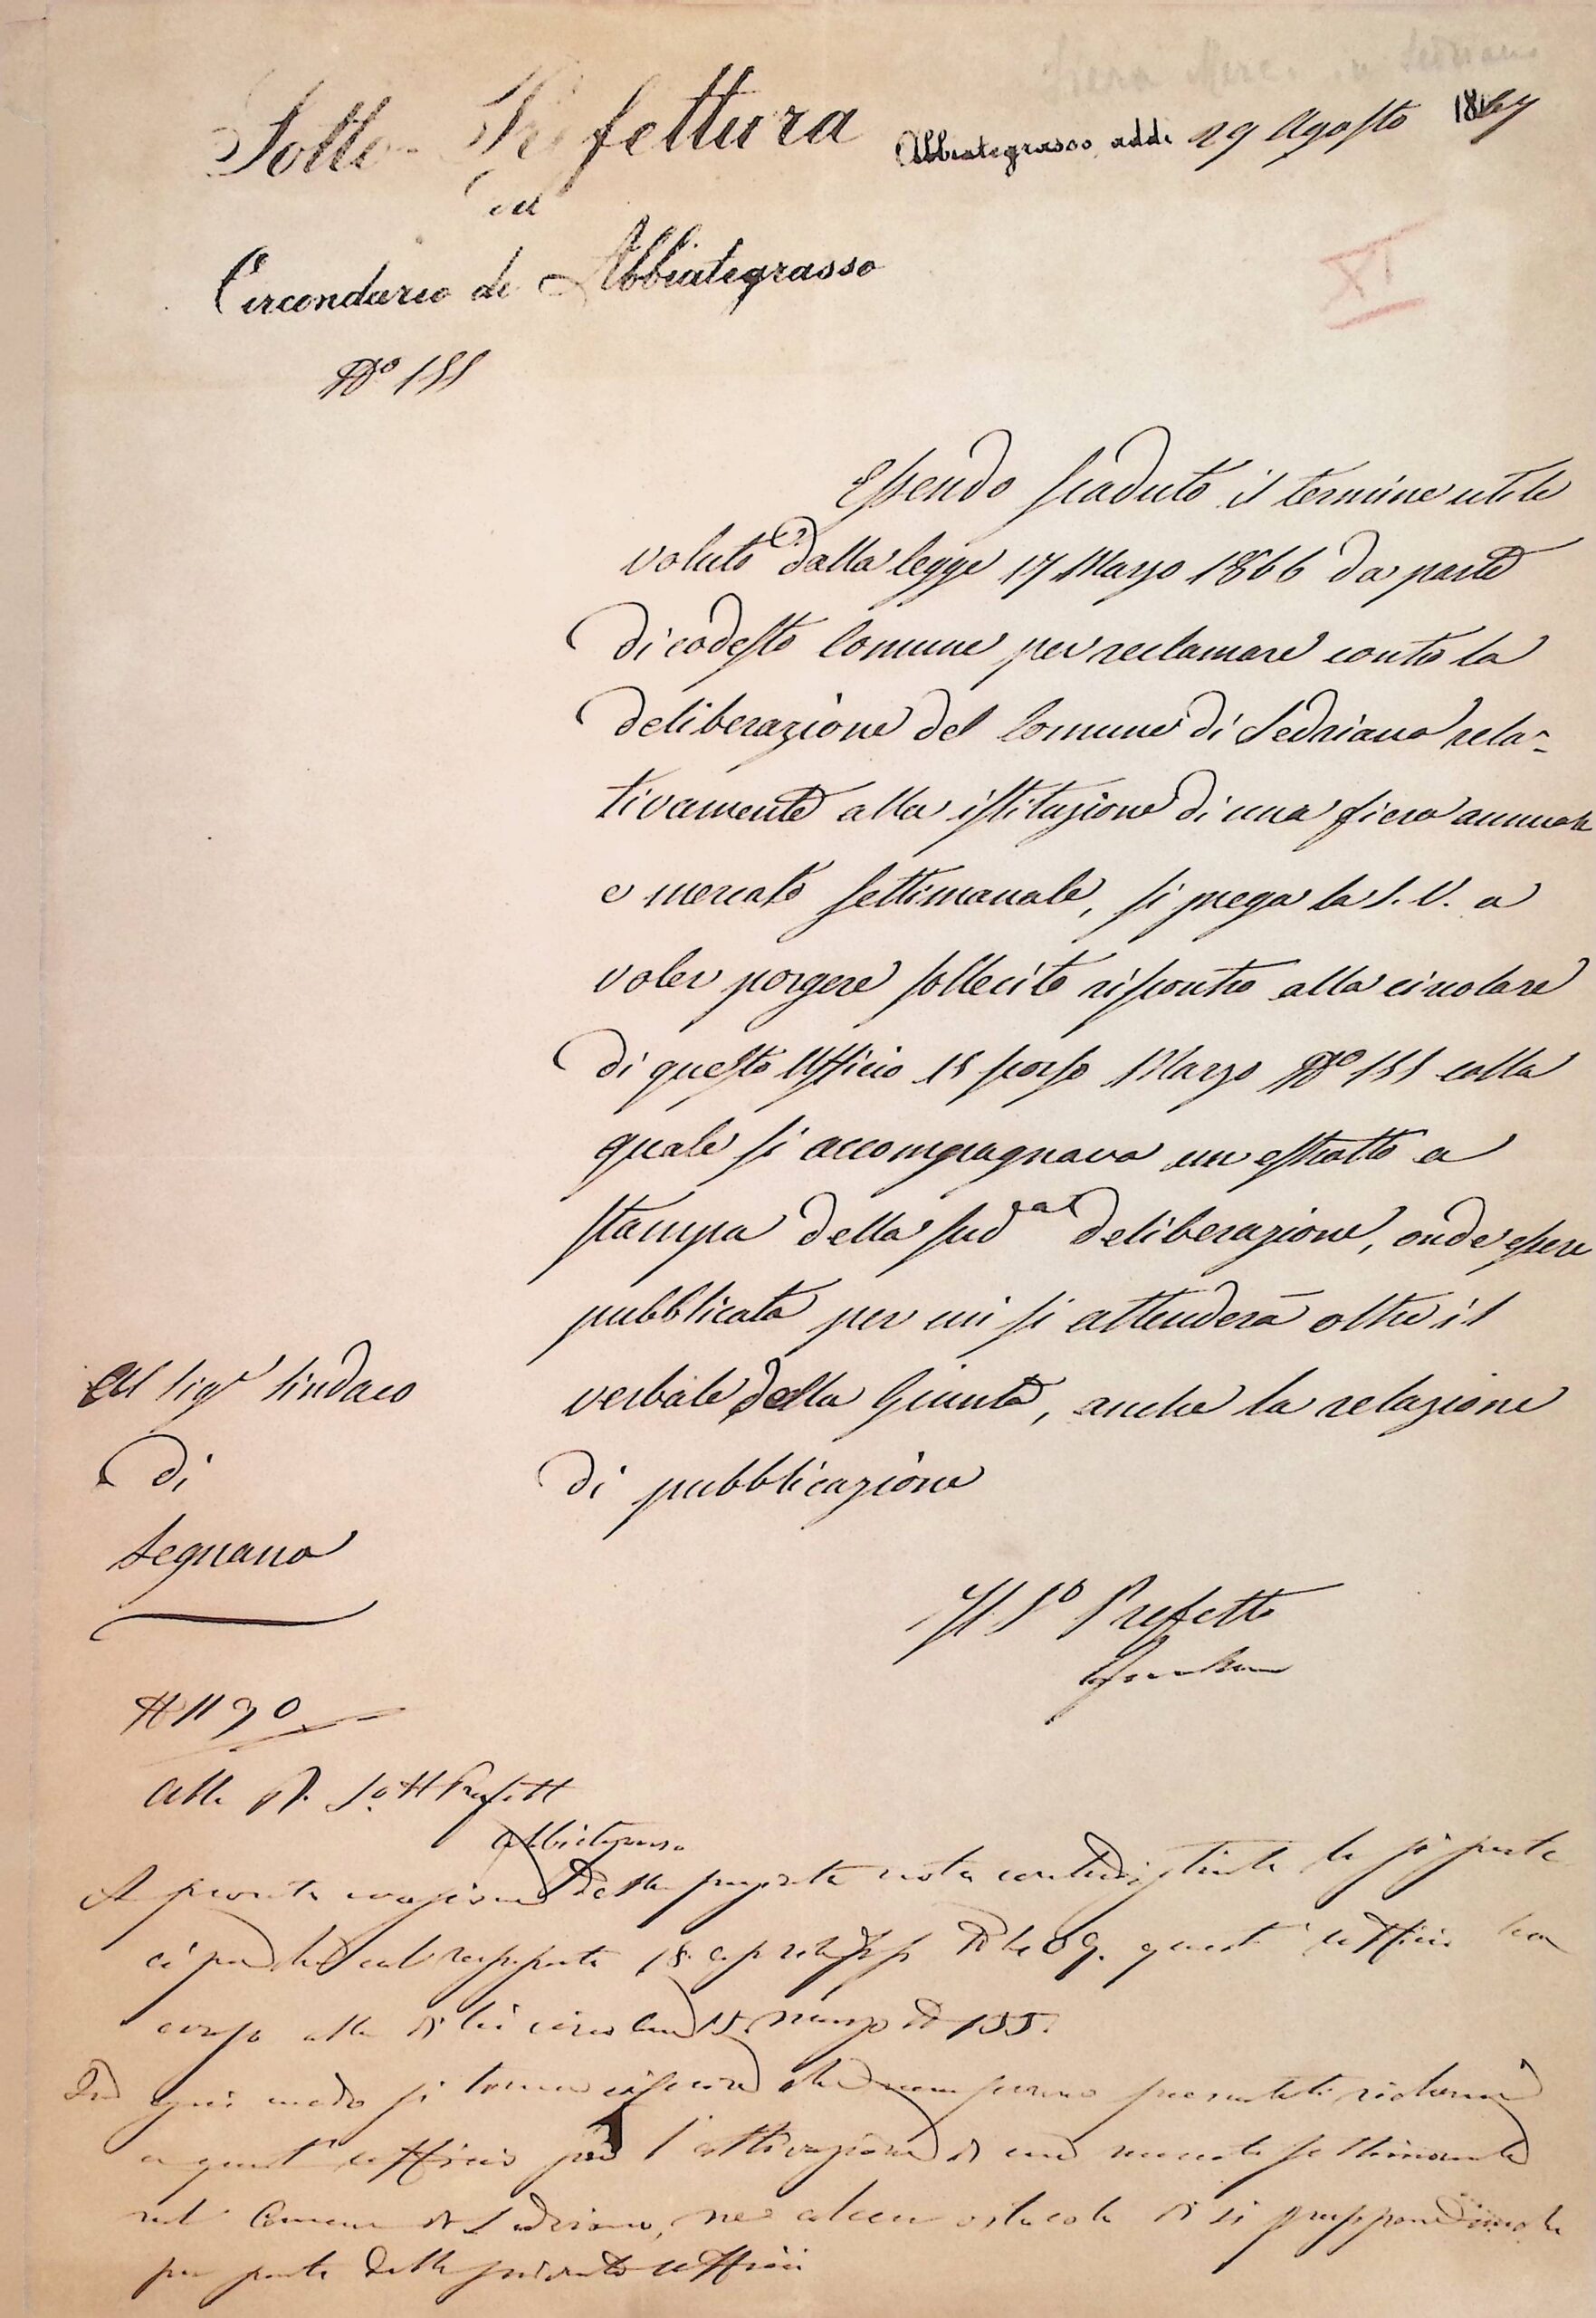 Fiera Merc. in Sedriano
Sotto-Prefettura
del
Circondario di Abbiategrasso
Abbiategrasso, addi 29 Agosto 1867
XI
N° 155
Essendo scaduto il termine utile
voluto dalla legge 17 Marzo 1866 da parte
di codesto Comune per reclamare contro la
deliberazione del Comune di Sedriano rela-
tivamente alla istituzione di una fiera annuale
e mercato settimanale, si prega la S. V. a
voler porgere sollecito riscontro alla circolare
di questo Ufficio 15 scorso Marzo N° 155 colla
quale si accompagnava un estratto a
stampa della sud.a deliberazione, onde essere
pubblicata per cui si attenderà oltre il
verbale della Giunta, anche la relazione
di pubblicazione
Al Sig.r Sindaco
di
Legnano
Il S.o Prefetto
N 1130
Alla R. Sott Prefett
Abbiategrasso
A pronta evasione della nota
col rapporto 18 aprile N quest' ufficio ha
evaso alla di lei circolare 15 marzo N 155.
In ogni modo si che non furono presentati reclami
a quest' ufficio per l'attivazione di un mercato settimanale
nel Comune di Sedriano, nè alcun ostacolo di si
per parte dello scrivente ufficio